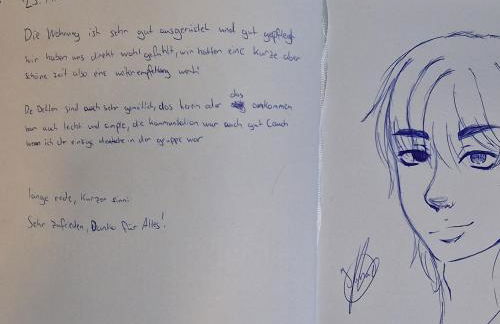 23.
Die Wohnung ist sehr gut ausgerüstet und gut gepflegt
wir haben uns direkt wohl gefühlt, wir hatten eine kurze aber
schöne zeit also eine weiterempfehlung wert!
De Betten sind auch sehr gemütlich, das herein oder das ankommen
war auch leicht und simple, die kommunikation war auch gut (auch
wenn ich der einzige deutsche in der gruppe war
lange rede, kurzer sinn:
Sehr zufrieden, Danke für Alles!